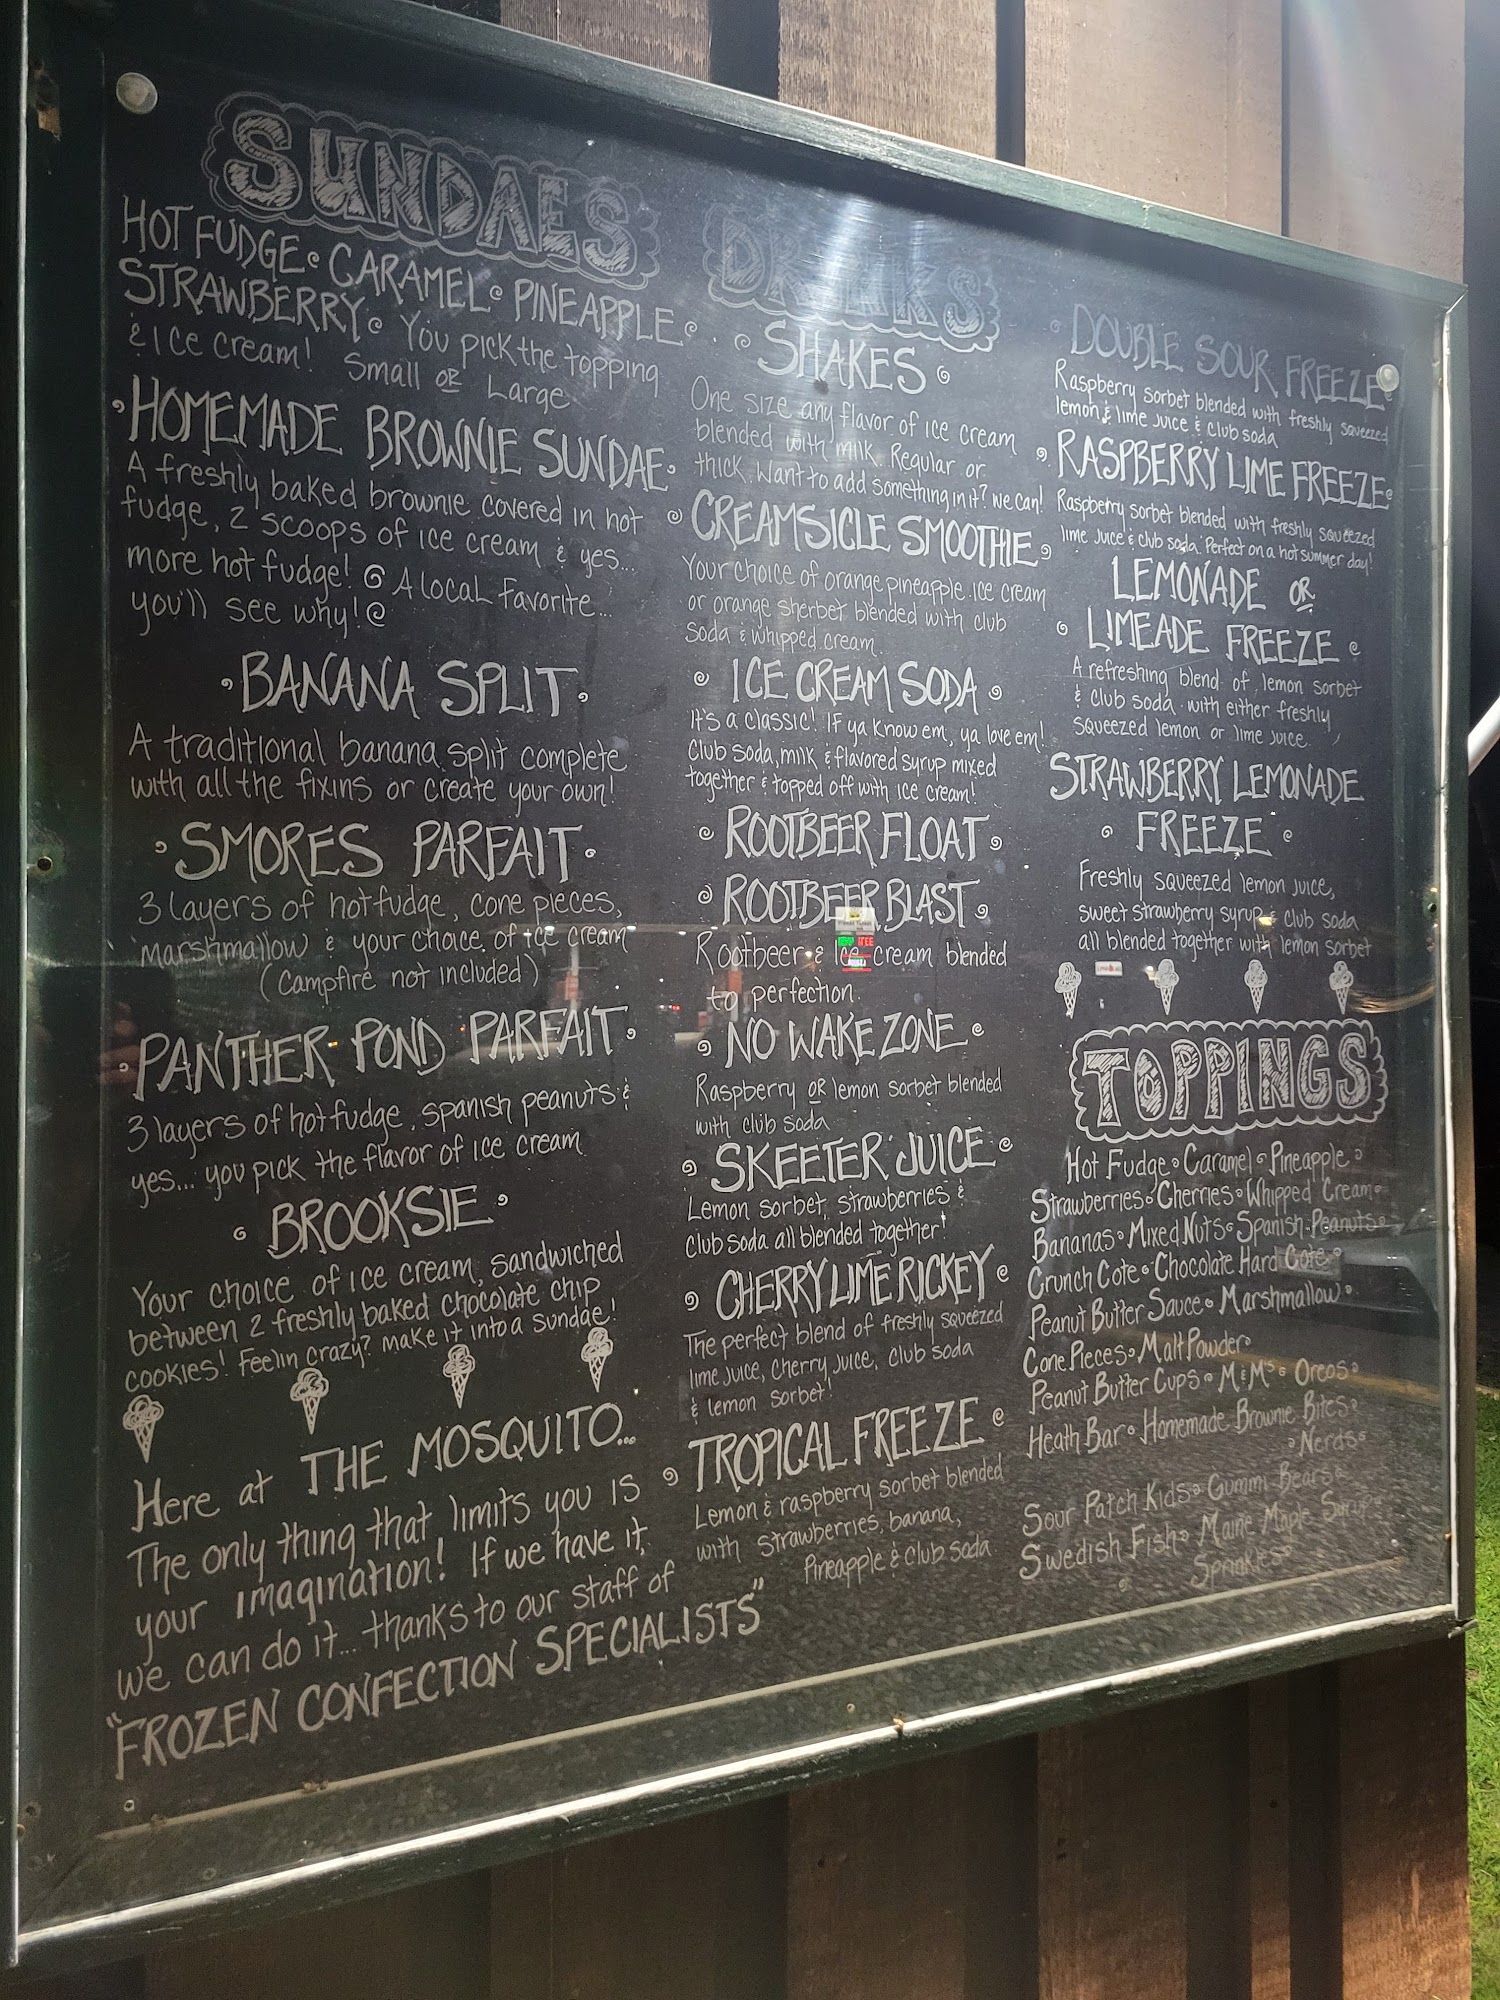 SUNDAES
HOT FUDGE CARAMEL PINEAPPLE
STRAWBERRY You pick the topping
& Ice Cream! Small or Large
HOMEMADE BROWNIE SUNDAE
A freshly baked brownie covered in hot
fudge, 2 scoops of ice cream & yes...
more hot fudge! @ A local favorite...
you'll see why! @
BANANA SPLIT
A traditional banana split complete
with all the fixins or create your own!
SMORES PARFAIT
3 layers of hot fudge, cone pieces,
marshmallow & your choice of ice cream
(Campfire not included)
PANTHER POND PARFAIT
3 layers of hot fudge, spanish peanuts &
yes... you pick the flavor of ice cream
BROOKSIE
Your choice of ice cream, sandwiched
between 2 freshly baked chocolate chip
cookies! Feelin crazy? make it into a sundae!
Here at THE MOSQUITO...
The only thing that limits you is
your imagination! If we have it,
we can do it... thanks to our staff of
"FROZEN CONFECTION SPECIALISTS"
DRINKS
SHAKES
One size any flavor of ice cream
blended with milk. Regular or
thick. Want to add something in it? we can!
CREAMSICLE SMOOTHIE
Your choice of orange pineapple ice cream
or orange sherbet blended with club
soda & whipped cream.
ICE CREAM SODA
it's a classic! If ya know em, ya love em!
Club soda, milk & flavored syrup mixed
together & topped off with ice cream!
ROOTBEER FLOAT
ROOTBEER BLAST
Rootbeer & Ice cream blended
to perfection.
NO WAKE ZONE
Raspberry or lemon sorbet blended
with club soda
SKEETER JUICE
Lemon sorbet, strawberries &
club soda all blended together!
CHERRY LIME RICKEY
The perfect blend of freshly squeezed
lime juice, cherry juice, club soda
& lemon sorbet!
TROPICAL FREEZE
Lemon & raspberry sorbet blended
with strawberries, banana,
Pineapple & Club soda.
DOUBLE SOUR FREEZE
Raspberry sorbet blended with freshly squeezed
lemon & lime juice & club soda
RASPBERRY LIME FREEZE
Raspberry sorbet blended with freshly squeezed
lime juice & club soda. Perfect on a hot summer day!
LEMONADE OR
LIMEADE FREEZE
A refreshing blend of lemon sorbet
& club soda with either freshly
squeezed lemon or lime juice.
STRAWBERRY LEMONADE
FREEZE
Freshly squeezed lemon juice,
sweet strawberry syrup & club soda
all blended together with lemon sorbet
TOPPINGS
Hot Fudge Caramel Pineapple
Strawberries Cherries Whipped Cream
Bananas Mixed Nuts Spanish Peanuts
Crunch Cote Chocolate Hard Cote
Peanut Butter Sauce Marshmallow
Cone Pieces Malt Powder
Peanut Butter Cups M&M's Oreos
Heath Bar Homemade Brownie Bites
Nerds
Sour Patch Kids Gummi Bears
Swedish Fish Maine Maple Syrup
Sprinkles